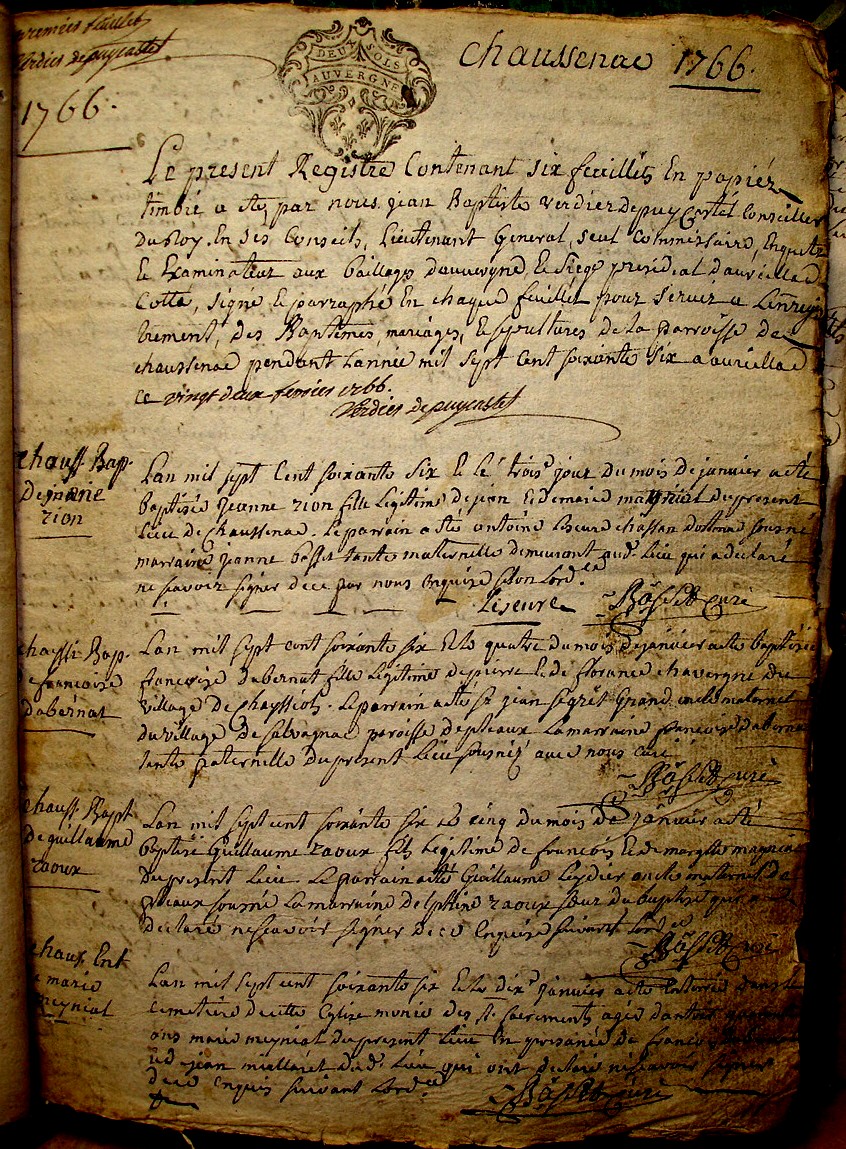 premier feuillet
Verdier depuycastel
1766.
DEUX SOLS
AUVERGNE
Chaussenac 1766.
Le present Registre Contenant six feuillets En papiér
timbré a eté par nous jean Baptiste verdier depuy Castel Conseiller
Du Roy En ses Conseils, Lieutenant General, seul Commissaire, Enqueteur
Et Examinateur aux bailliage dauvergne, Et Siege presidial daurillac
Cotté, signé Et parraphé En chaque feuillet pour servir a Lenregis
trement, des Baptêmes, mariages, Et sepultures de La parroisse de
chaussenac pendant Lannée mil sept Cent soixante six a aurillac
ce vingt deux fevrier 1766.
Verdier depuycastel
chauss Bap.
De jeanne
rion
Lan mil sept Cent soixante six Et le trois jour du mois de janvier a eté
baptisée jeanne rion fille Legitime de jean Et de marie du present
Lieu de Chaussenac. Le parrain a eté antoine soussigné
marraine jeanne basset tante maternelle demeurant aud. Lieu qui a declaré
ne scavoir signer de ce par nous Enquise selon Lord.ce
Liseure Basset curé
chauss Bap.
de francoise
dabernat
Lan mil sept cent soixante six Et le quatre du mois de janvier a eté baptisée
francoise dabernat fille Legitime de pierre Et de florance chavergne du
village de Chayssiol. Le parrain a eté sr jean segret Grand oncle maternel
du village de salvagnac paroisse de pleaux La marraine francoise dabernat
tante paternelle du present Lieu soussigné avec nous curé
Basset curé
chauss Bapt
de guillaume
raoux
Lan mil sept cent soixante six Et le cinq du mois de janvier a eté
baptisé Guillaume raoux fils Legitime de francois Et de
du present Lieu Le parrain a eté Guillaume Leydier oncle maternel de
pleaux soussigné La marraine delphine raoux sœur du baptisé qui a
declaré ne scavoir signer de ce Enquise suivant Lord.ce
Basset curé
chauss Ent
de marie
meynial
Lan mil sept cent soixante six Et le dix janvier a eté Enterrée dans le
Cemetiere de cette Eglise munie des st. sacrements agée d
ans marie meynial du present Lieu En presence de francois
Et de jean du d. Lieu qui ont declaré ne scavoir signer
de ce enquis suivant Lord.ce
Basset curé